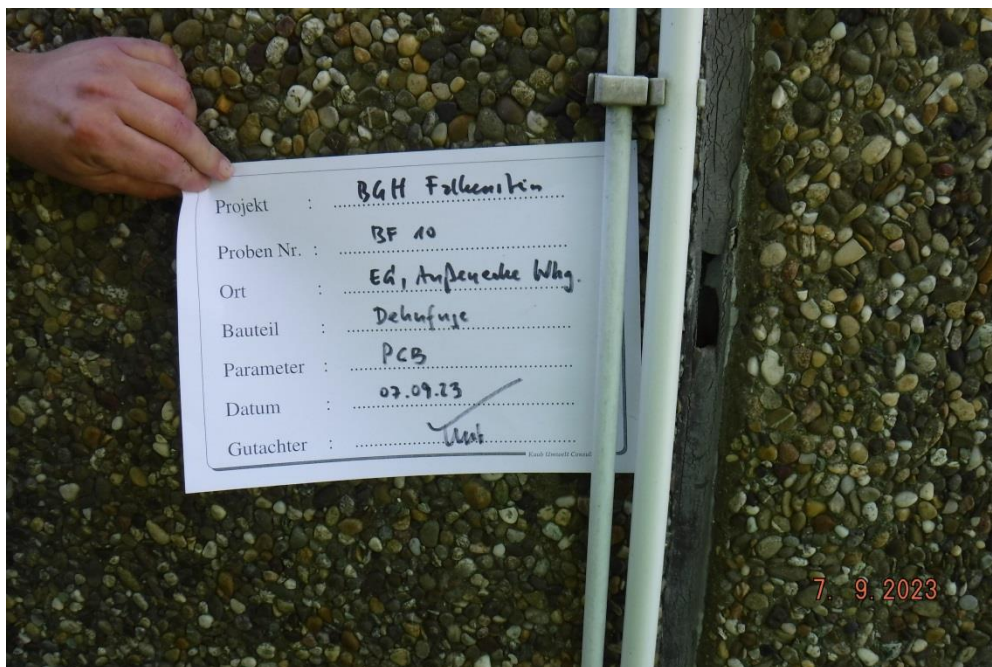 Projekt : BGH Falkenstein
Proben Nr. : BF 10
Ort : EG, Außenecke Whg.
Bauteil : Dehnfuge
Parameter : PCB
Datum : 07.09.23
Gutachter :
Umwelt Consul
7. 9.2023